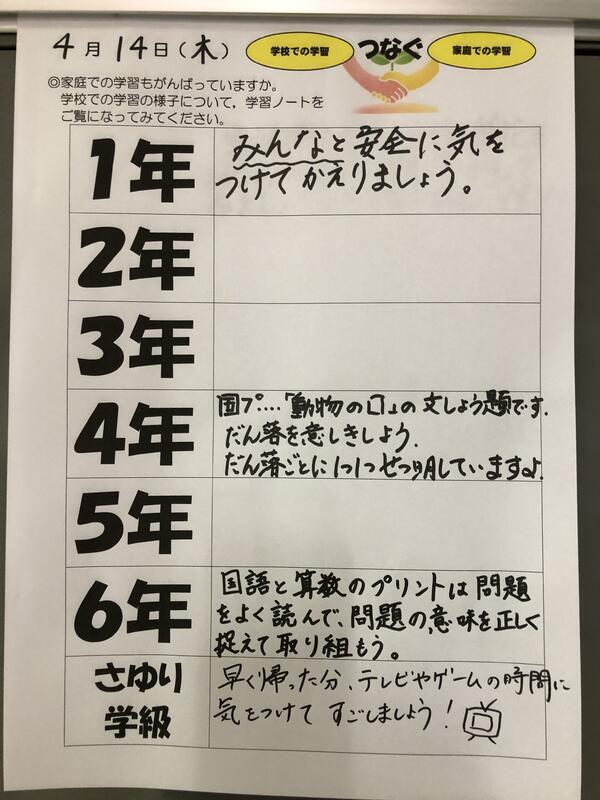 4月14日(木)
学校での学習 つなぐ 家庭での学習
◎家庭での学習もがんばっていますか。
学校での学習の様子について，学習ノートを
ご覧になってみてください。
1年
みんなと安全に気を
つけてかえりましょう。
2年
3年
4年
国プ‥‥「動物の口」の文しょう題です.
だん落を意しきしよう.
だん落ごとに1つ1つせつ明していますよ.
5年
6年
国語と算数のプリントは問題
をよく読んで、問題の意味を正しく
捉えて取り組もう。
さゆり
学級
早く帰った分、テレビやゲームの時間に
気をつけて すごしましょう!